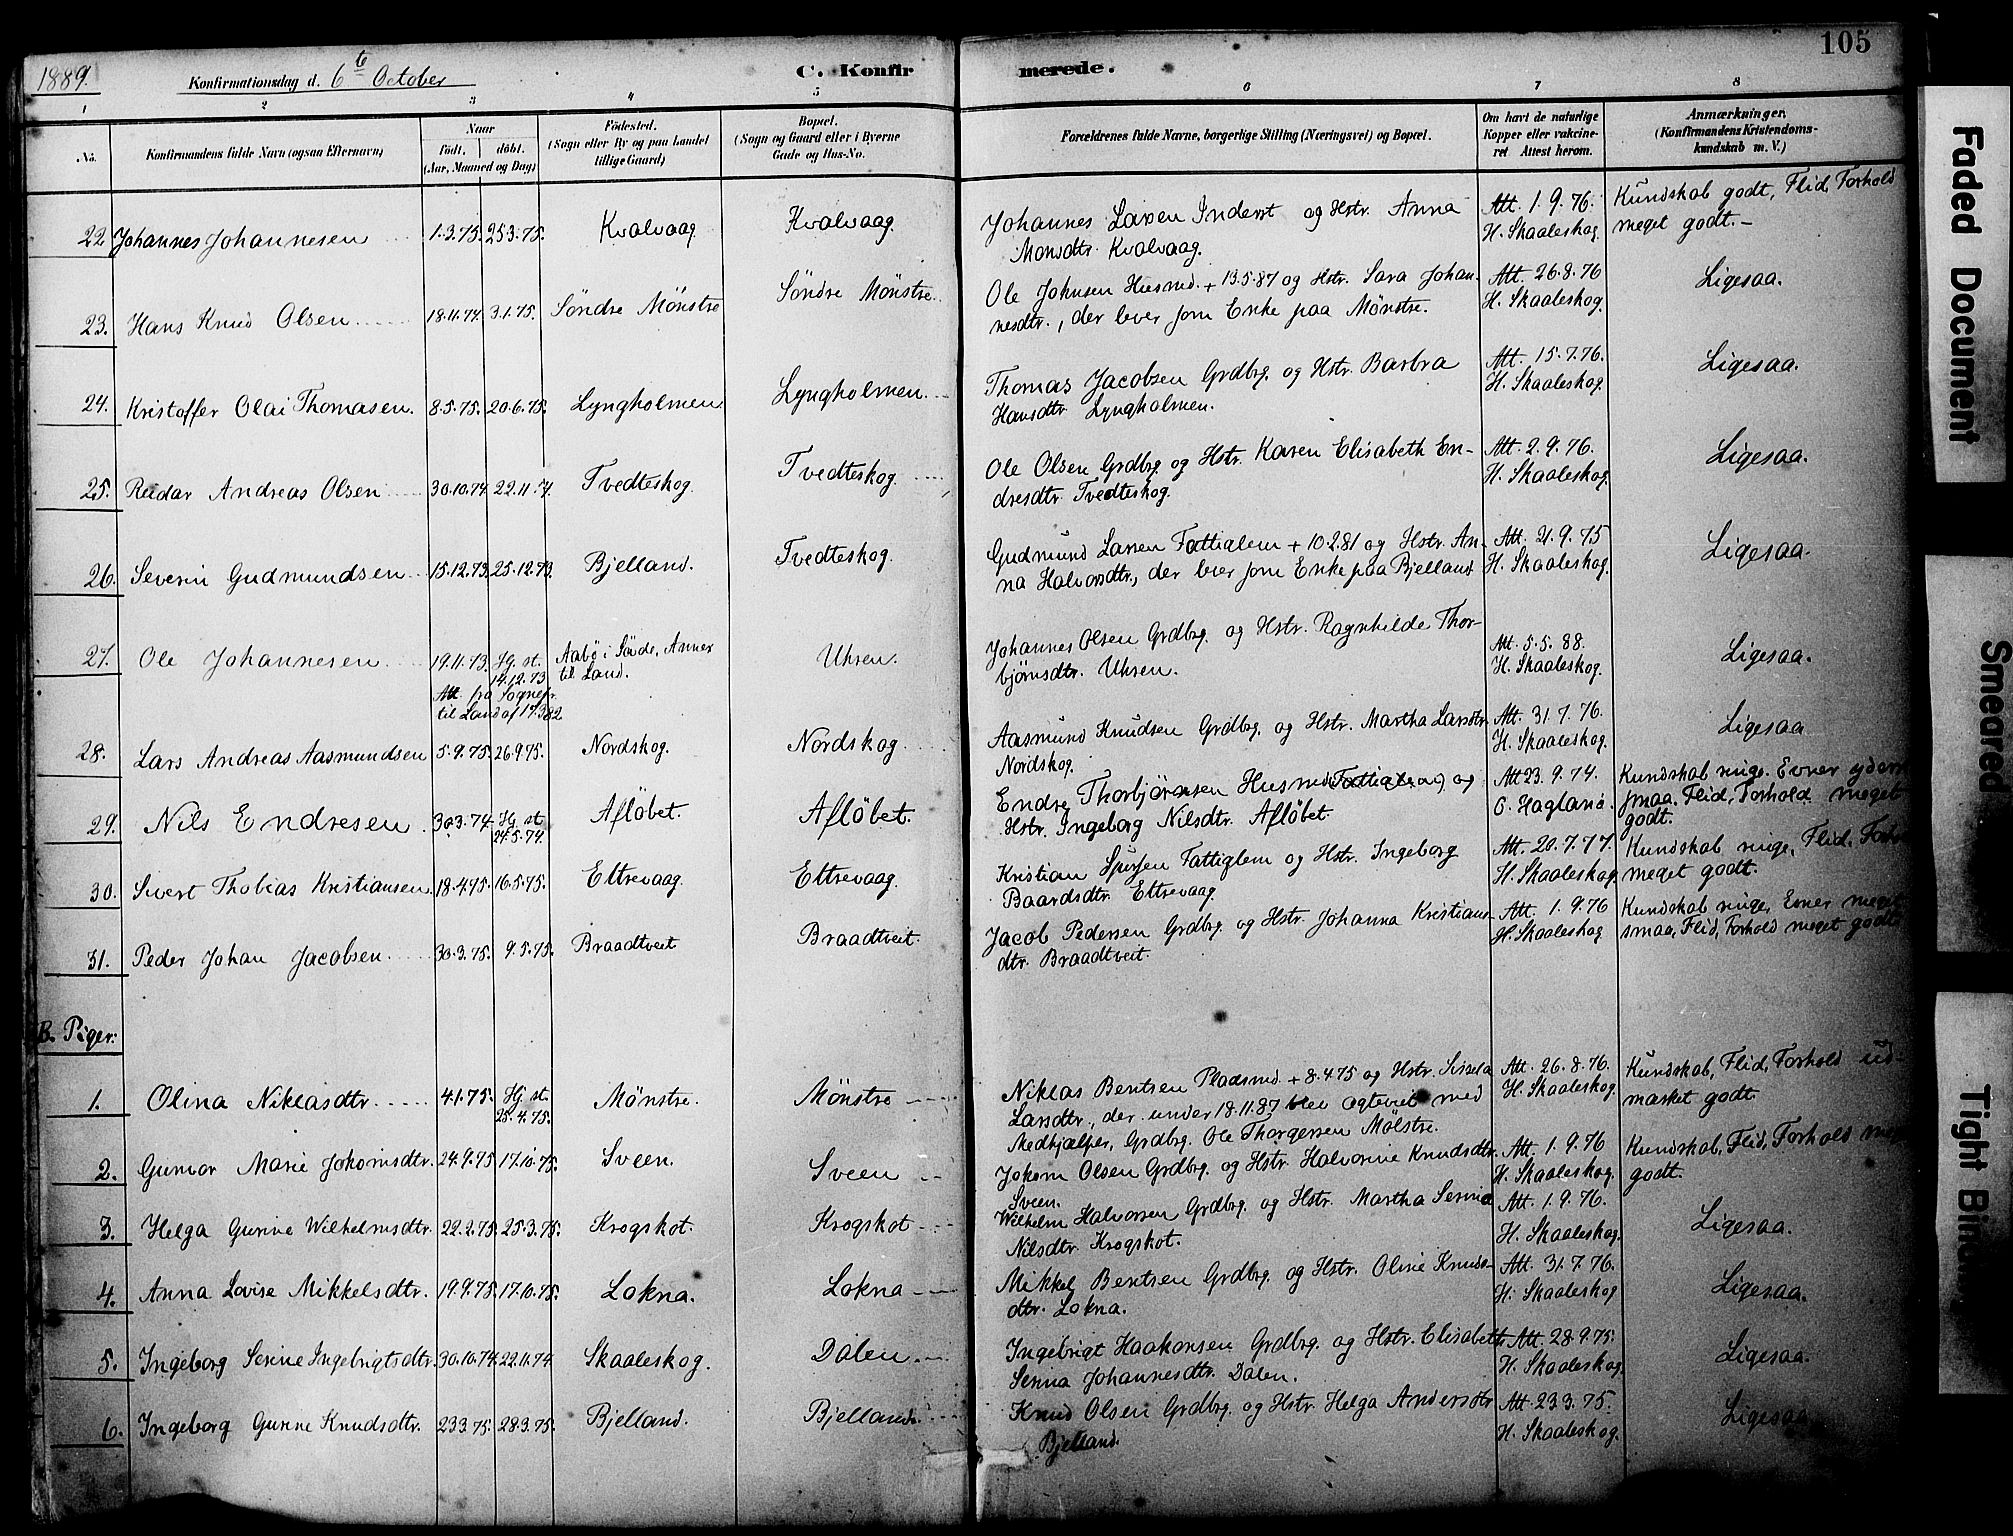 105
1889.
Konfirmationsdag d. 6te October
C. Konfirmerede.
1 2 3 4 5 6 7 8
No.
Konfirmandens fulde Navn (ogsaa Efternavn)
Naar
Födt. döbt.
(Aar, Maaned og Dag)
Födested.
(Sogn eller By og paa Landet
tillige Gaard)
Bopæl.
(Sogn og Gaard eller i Byerne
Gade og Hus-No.
Forældrenes fulde Navne, borgerlige Stilling (Næringsvei) og Bopæl.
Om havt de naturlige
Kopper eller vakcine-
ret Attest herom.
Anmærkninger.
(Konfirmandens Kristendoms-
kundskab m. V.)
22 Johannes Johannesen 1.3.75. 25.3.75. Kvalvaag Kvalvaag. Johannes Larsen Inderst og Hstr. Anna Att. 1.9.76. Kundskab godt, Flid, Forhold
Monsdtr. Kvalvaag. H. Skaaleskog. meget godt.
23. Hans Knud Olsen 18.11.74. 3.1.75. Söndre Mönstre Söndre Mönstre. Ole Johnsen Husmd. + 13.5.87 og Hstr. Sara Johan- Att. 26.8.76 Ligesaa.
nesdtr., der lever som Enke paa Mönstre. H. Skaaleskog.
24. Kristoffer Olai Thomasen. 8.5.75. 20.6.75. Lyngholmen Lyngholmen. Thomas Jacobsen Grdbrg. og Hstr. Barbra Att. 15.7.76. Ligesaa.
Hansdtr. Lyngholmen. H. Skaaleskog.
25. Reidar Andreas Olsen 30.10.74. 22.11.74. Tvedteskog. Tvedteskog Ole Olsen Grdbrg. og Hstr. Karen Elisabeth En- Att. 2.9.76. Ligesaa.
dresdtr. Tvedteskog. H. Skaaleskog.
26. Severin Gudmundsen 15.12.73. 25.12.73. Bjelland. Tvedteskog. Gudmund Larsen Fattiglem + 10.2.81 og Hstr. An- Att. 21.9.75 Ligesaa.
na Halvorsdtr., der lever som Enke paa Bjelland. H. Skaaleskog.
27. Ole Johannesen 19.11.73. Hj. st. 14.12.73 Aabö i Sövde, Annex Uhren. Johannes Olsen Grdbrg. og Hstr. Ragnhilde Thor- Att. 5.5.88. Ligesaa.
til Sand. bjørnsdtr. Uhren. H. Skaaleskog.
Att. fra Sognepr.
til Sand af 17.3.82
28. Lars Andreas Aasmundsen 5.9.75. 26.9.75. Nordskog. Nordskog Aasmund Knudsen Grdbrg. og Hstr. Martha Larsdtr. Att. 31.7.76. Ligesaa
Nordskog. H. Skaaleskog.
29. Nils Endresen 30.3.74. Hj. st. 24.5.74. Aflöbet. Aflöbet. Endre Thorbjørnsen Husmd. (Fattiglem) og Att. 23.9.74. Kundskab ringe. Evner yderst
Hstr. Ingeborg Nilsdtr. Aflöbet. O. Hagland. smaa. Flid, Forhold meget
godt.
30. Sivert Thobias Kristiansen 18.4.75. 16.5.75. Eltrevaag. Eltrevaag. Kristian Fattiglem og Hstr. Ingeborg Att. 20.7.77. Kundskab ringe, Flid, Forh.
Baardsdtr. Eltrevaag. H. Skaaleskog. meget godt.
31. Peder Johan Jacobsen 30.3.75. 9.5.75. Braadtveit Braadtveit. Jacob Pedersen Grdbrg. og Hstr. Johanna Kristians- Att. 1.9.76 Kundskab ringe, Evner meget
dtr. Braadtveit. H. Skaaleskog smaa, Flid, Forhold meget godt
B. Piger:
1. Olina Niklasdtr. 4.1.75. Hj. st. 25.4.75. Mönstre. Mönstre Niklas Bentsen Pladsmd. + 8.4.75 og Hstr. Sissela Att. 26.8.76. Kundskab, Flid, Forhold ud-
Larsdtr., der under 18.11.87 blev ægteviet med H. Skaaleskog. mærket godt.
Medhjælper, Grdbrg. Ole Thorgersen Mölstre.
2. Gunvor Marie Johansdtr. 24.9.75 17.10.75. Sveen. Sveen Johan Olsen Grdbrg. og Hstr. Halvorine Knudsdtr. Att. 1.9.76 Kundskab, Flid, Forhold meget
Sveen. H. Skaaleskog. godt.
3. Helga Gurine Wilhelmsdtr. 22.2.75. 25.3.75. Krogskot. Krogskot Wilhelm Halvorsen Grdbrg. og Hstr. Martha Serina Att. 1.9.76. Ligesaa.
Nilsdtr. Krogskot. H. Skaaleskog.
4. Anna Lovise Mikkelsdtr. 19.9.75. 17.10.75. Lokna. Lokna Mikkel Bentsen Grdbrg. og Hstr. Oline Knuds- Att. 31.7.76. Ligesaa.
dtr. Lokna. H. Skaaleskog
5. Ingeborg Serine Ingebrigtsdtr. 30.10.74. 22.11.74 Skaaleskog. Dalen. Ingebrigt Haakonsen Grdbrg. og Hstr. Elisabeth Att. 28.9.75. Ligesaa.
Senna Johannesdtr. Dalen. H. Skaaleskog
6. Ingeborg Gurine Knudsdtr. 23.3.75. 28.3.75. Bjelland. Bjelland. Knud Olsen Grdbrg. og Hstr. Helga Andersdtr Att. 23.3.75. Ligesaa
Bjelland. H. Skaaleskog.
Faded Document
Smeared
Tight Binding